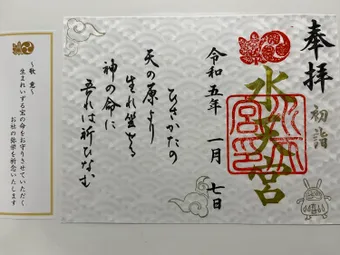 奉拝
初詣
水天宮
令和五年 一月 七日
ひさかたの
天の原より
生れ坐せる
神の命に
吾れは祈ひなむ
〜歌意〜
生まれいずる宮の命をお守りさせていただく
お社の弥栄を祈念いたします